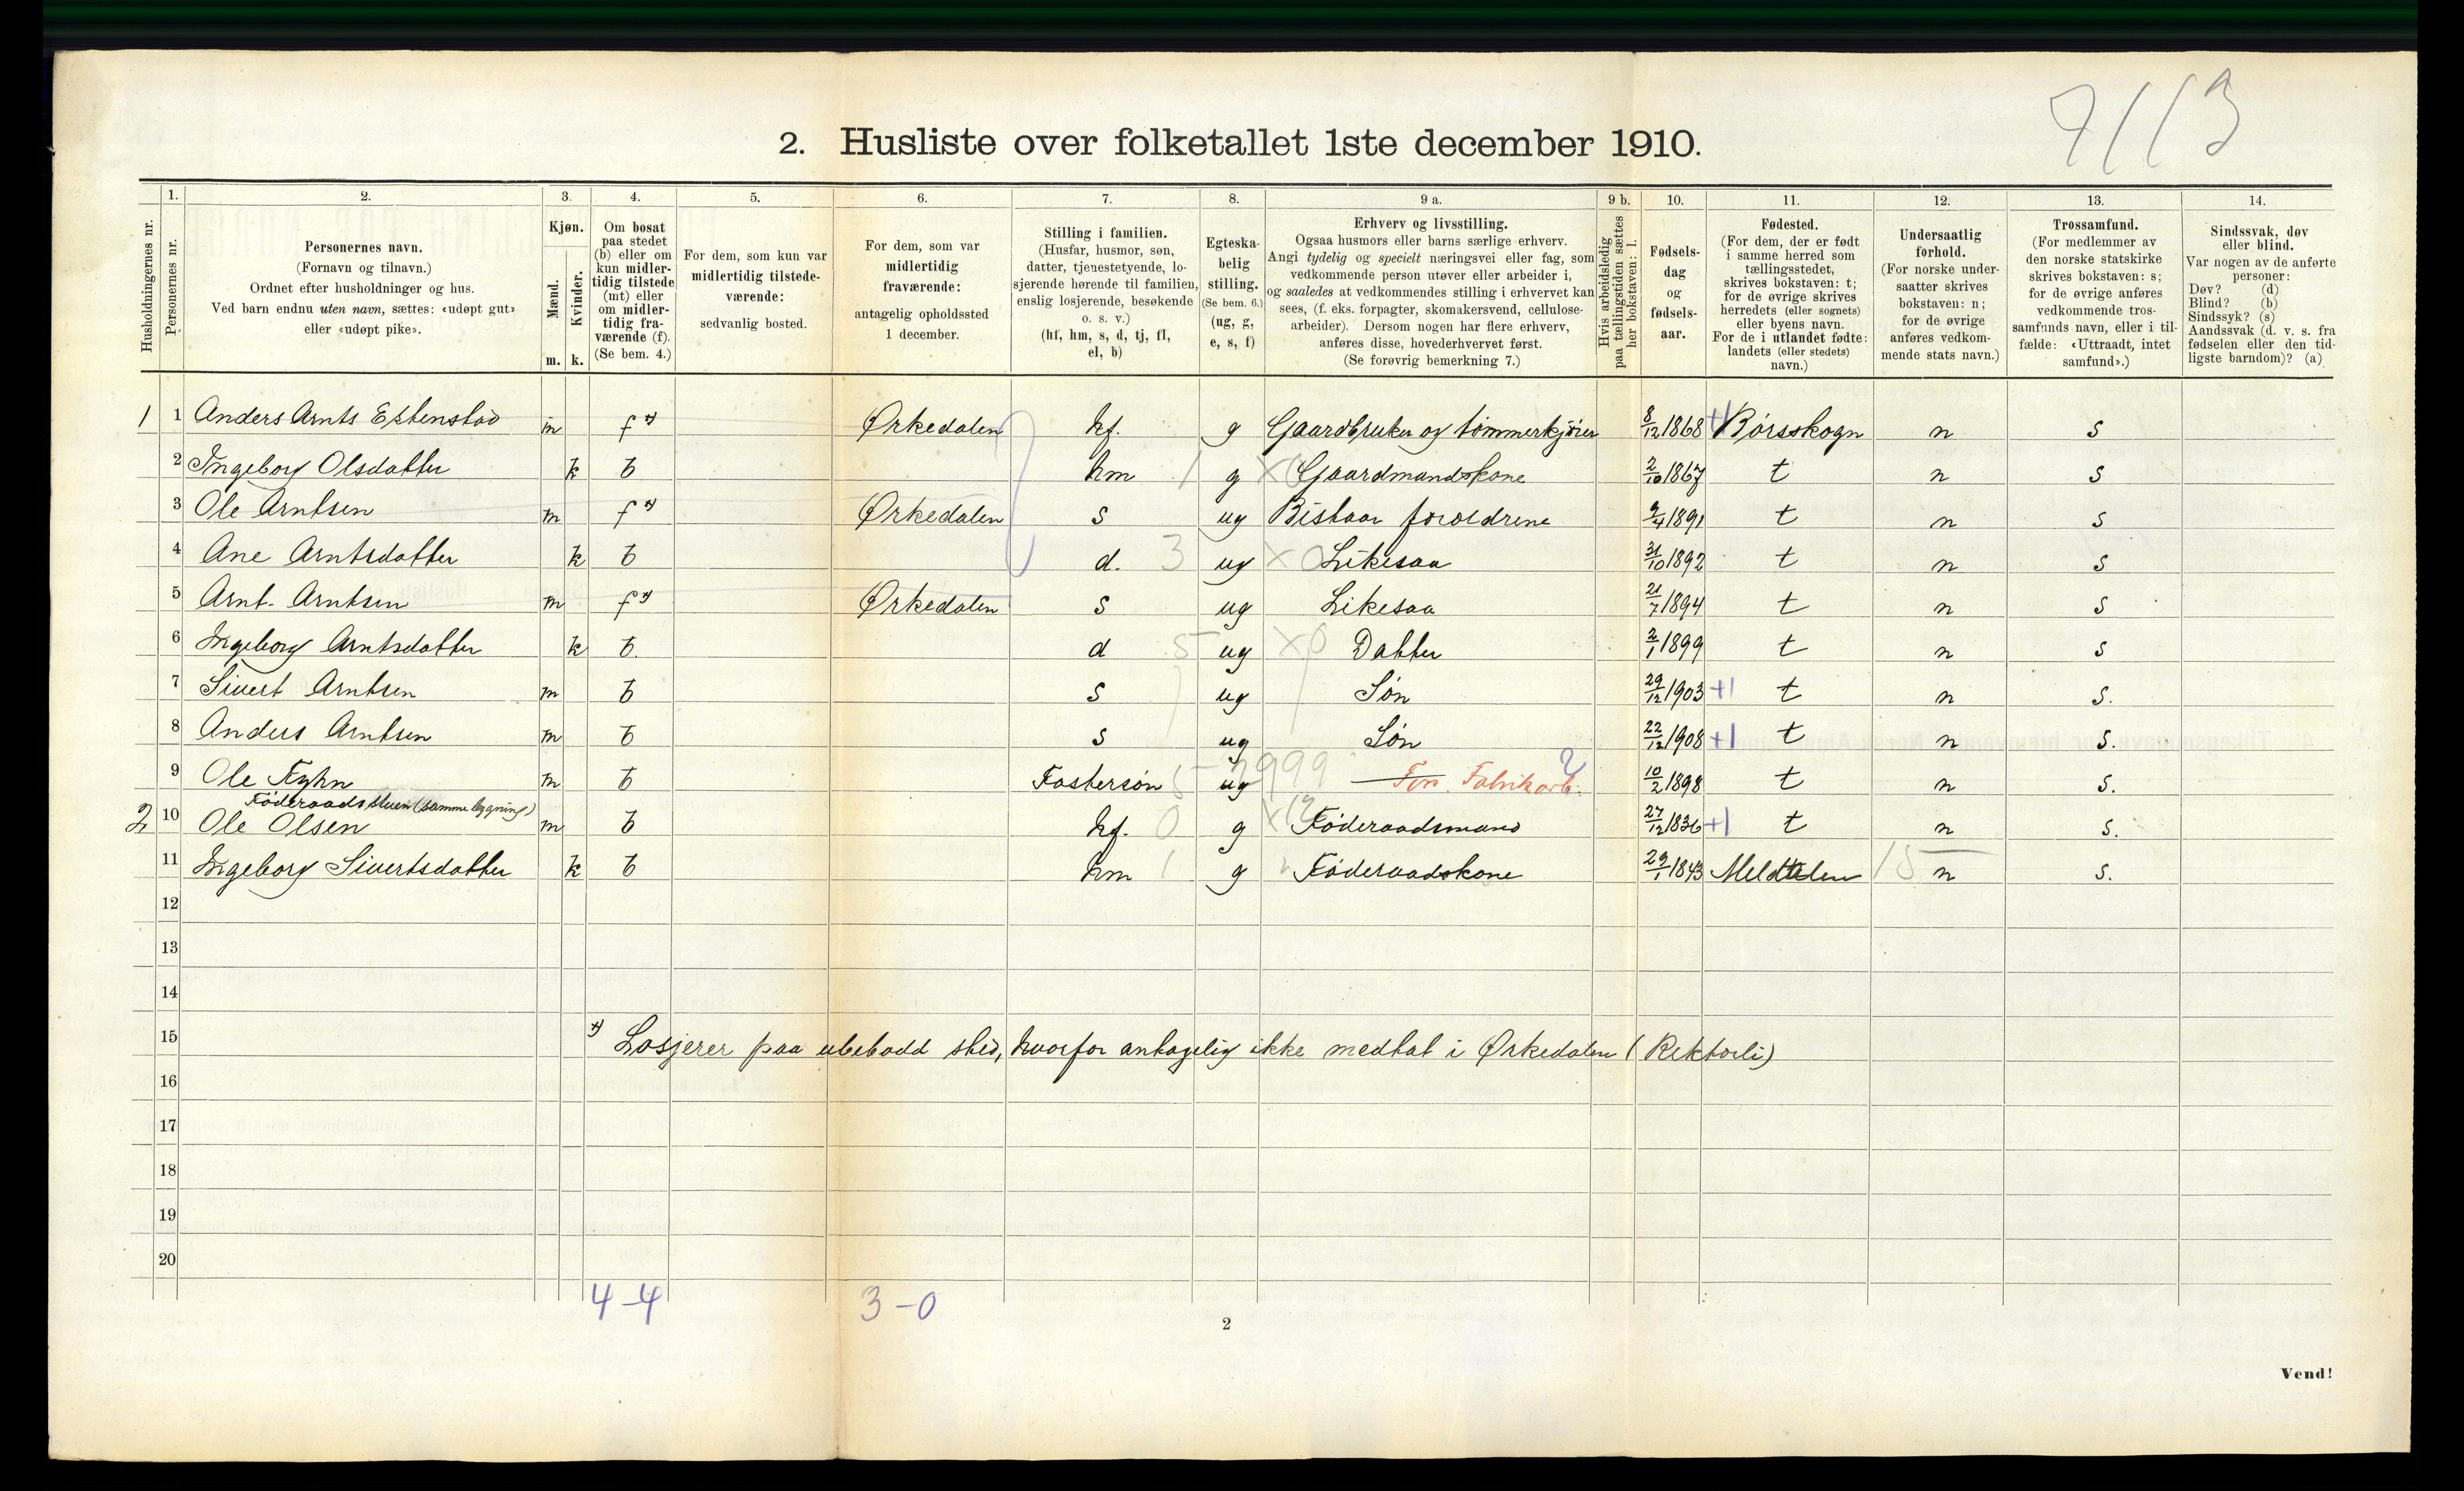 7113
2. Husliste over folketallet 1ste december 1910.
1. 2. 3. 4. 5. 6. 7. 8. 9 a. 9 b. 10. 11. 12. 13. 14.
Husholdningernes nr.
Personernes nr.
Personernes navn.
(Fornavn og tilnavn.)
Ordnet efter husholdninger og hus.
Ved barn endnu uten navn, sættes: «udøpt gut»
eller «udøpt pike».
Kjøn.
Mænd.
Kvinder.
m. k.
Om bosat
paa stedet
(b) eller om
kun midler-
tidig tilstede
(mt) eller
om midler-
tidig fra-
værende (f).
(Se bem. 4.)
For dem, som kun var
midlertidig tilstede-
værende:
sedvanlig bosted.
For dem, som var
midlertidig
fraværende:
antagelig opholdssted
1 december.
Stilling i familien.
(Husfar, husmor, søn,
datter, tjenestetyende, lo-
sjerende hørende til familien,
enslig losjerende, besøkende
o. s. v.)
(hf, hm, s, d, tj, fl,
el, b)
Egteska-
belig
stilling.
(Se bem. 6.)
(ug, g,
e, s, f)
Erhverv og livsstilling.
Ogsaa husmors eller barns særlige erhverv.
Angi tydelig og specielt næringsvei eller fag, som
vedkommende person utøver eller arbeider i,
og saaledes at vedkommendes stilling i erhvervet kan
sees, (f. eks. forpagter, skomakersvend, cellulose-
arbeider). Dersom nogen har flere erhverv,
anføres disse, hovederhvervet først.
(Se forøvrig bemerkning 7.)
Hvis arbeidsledig
paa tællingstiden sættes
her bokstaven: l.
Fødsels-
dag
og
fødsels-
aar.
Fødested.
(For dem, der er født
i samme herred som
tællingsstedet,
skrives bokstaven: t;
for de øvrige skrives
herredets (eller sognets)
eller byens navn.
For de i utlandet fødte:
landets (eller stedets)
navn.)
Undersaatlig
forhold.
(For norske under-
saatter skrives
bokstaven: n;
for de øvrige
anføres vedkom-
mende stats navn.)
Trossamfund.
(For medlemmer av
den norske statskirke
skrives bokstaven: s;
for de øvrige anføres
vedkommende tros-
samfunds navn, eller i til-
fælde: «Uttraadt, intet
samfund».)
Sindssvak, døv
eller blind.
Var nogen av de anførte
personer:
Døv? (d)
Blind? (b)
Sindssyk? (s)
Aandssvak (d. v. s. fra
fødselen eller den tid-
ligste barndom)? (a)
1 1 Anders Arnts Estenstad m f *) Ørkedalen hf. g Gaardbruker og tømmerkjører 8/12 1868 Børsskogn n s
2 Ingeborg Olsdatter k b hm 1 g Gaardmandskone 2/10 1867 t n s
3 Ole Arntsen m f *) Ørkedalen s ug Bistaar foroldrene 9/4 1891 t n s
4 Ane Arntsdatter k b d. 3 ug X 0 Likesaa 31/10 1892 t n s
5 Arnt Arntsen m f *) Ørkedalen s ug Likesaa 21/7 1894 t n s
6 Ingeborg Arntsdatter k b. d 5 ug X0 Datter 2/1 1899 t n s
7 Sivert Arntsen m b s ug Søn 29/12 1903 +1 t n s.
8 Anders Arntsen m b s ug Søn 22/12 1908 +1 t n s.
9 Ole Fyhn m b Fostersøn ug 9999 Fabrikarb. 2 10/2 1898 t n s.
Föderaadsstuen (samme bygning)
2 10 Ole Olsen m b hf. 0 g Föderaadsmand 27/12 1836 +1 t n s.
11 Ingeborg Sivertsdatter k b hm 1 g Föderaadskone 29/1 1843 Meldalen 15 n s.
12
13
14
15 *) Losjerer paa ubebodd sted, hvorfor antagelig ikke medtat i Ørkedalen (Rektorli)
16
17
18
19
20
4-4 3-0
2
Vend!